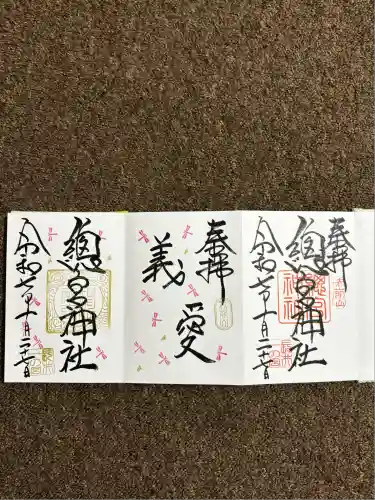 奉拝
總宮神社
令和七年十月二十七日
奉拝
愛
義
總宮神社
令和七年十月二十七日